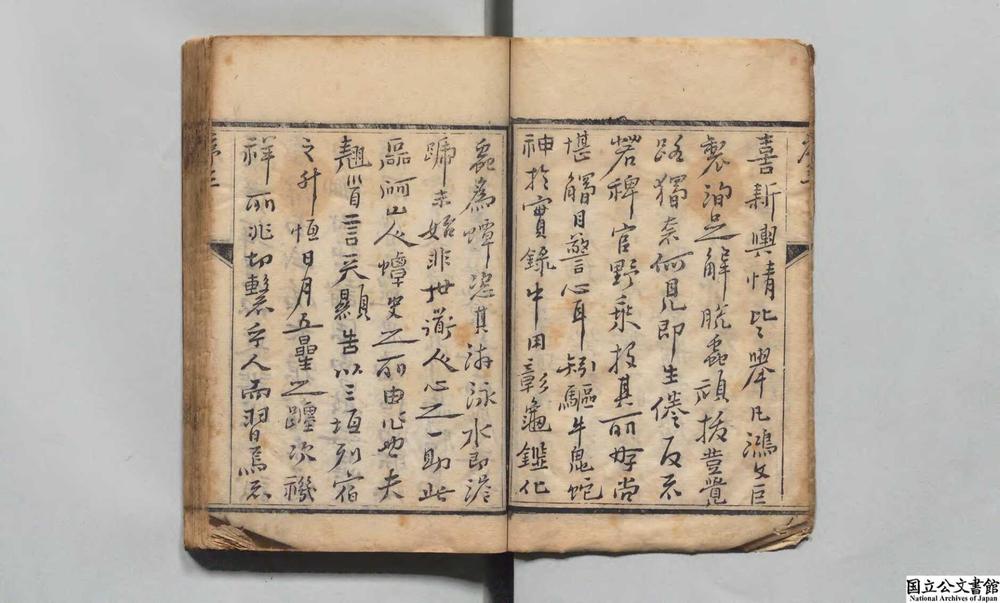 序二
喜新輿情比比舉凡鴻文巨
製洵足解脫蠢頑拔登覺
路獨奈何見即生倦反不
若稗官野乘投其所好尚
堪觸目警心耳矧驅牛鬼蛇
神於實錄中用彰龜鑑化
蠹為蟫恣其游泳水即
蹏未始非世道人心之一助此
磊砢山人蟫史之所由作也夫
翹首言天顯告以三垣列宿
之升恒日月五星之躔次禨
祥所兆切繫乎人而習焉不
序三
国立公文書館
National Archives of Japan